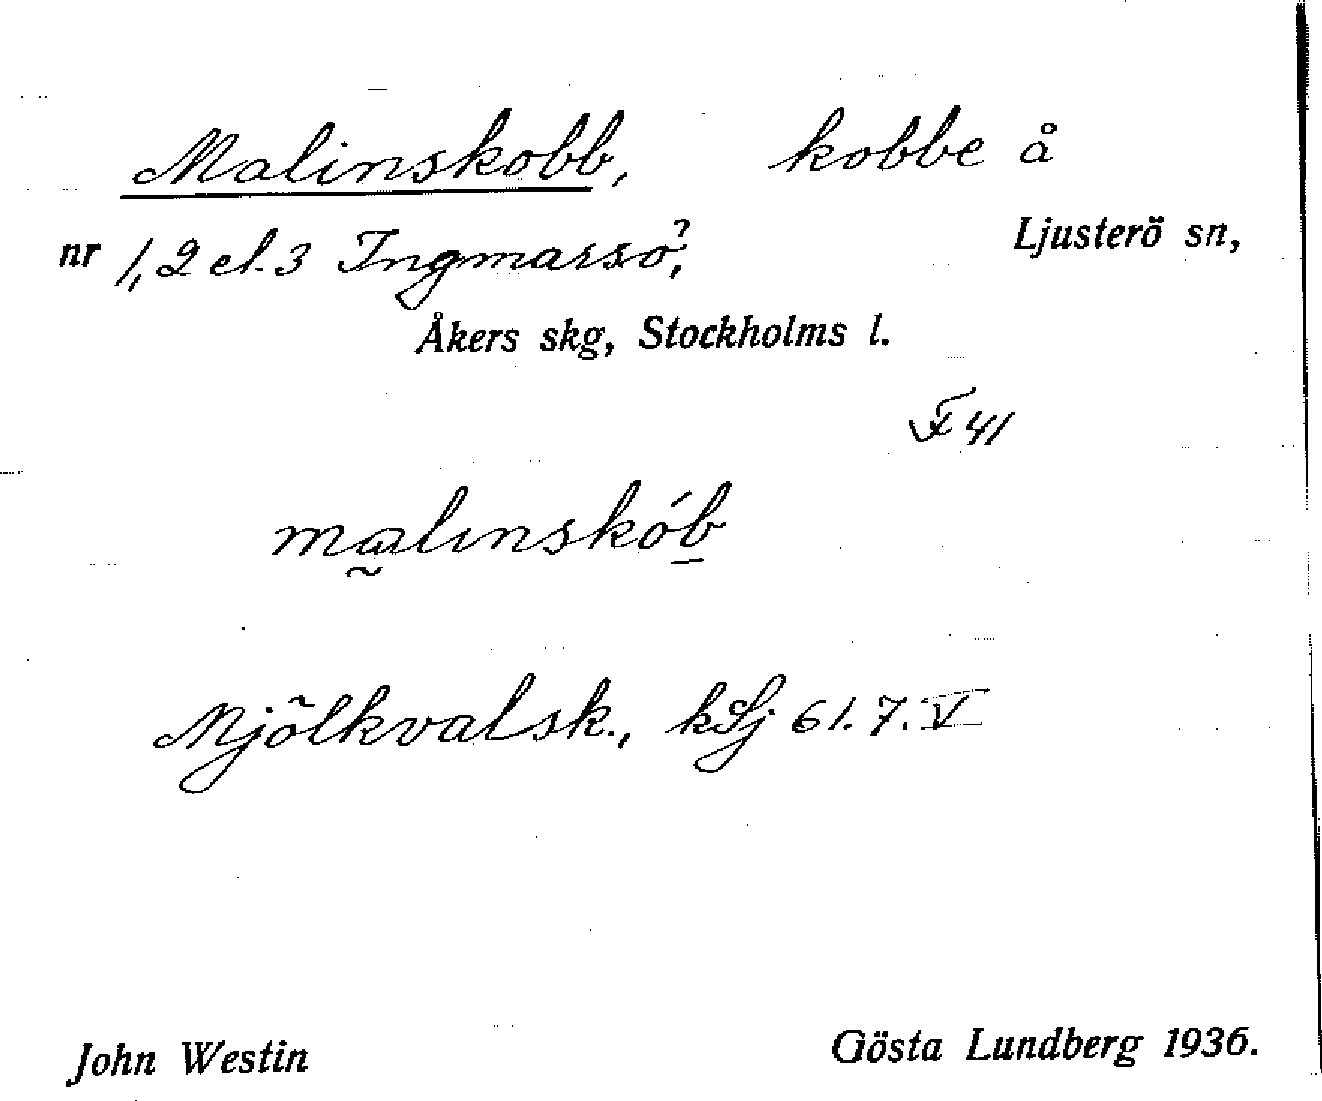 Malinskobb, kobbe å
nr 1, 2 el. 3 Ingmarsö?, Ljusterö sn,
Åkers skg, Stockholms l.
F 41
malınskób
Mjölkvalsk., kSj 61.7.V
John Westin Gösta Lundberg 1936.